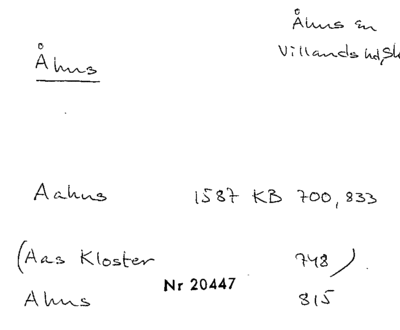 Åhus sn
Villands hd, Sk
Åhus
Aahus 1587 KB 700, 833
(Aas Kloster 748)
Nr 20447
Ahus 815